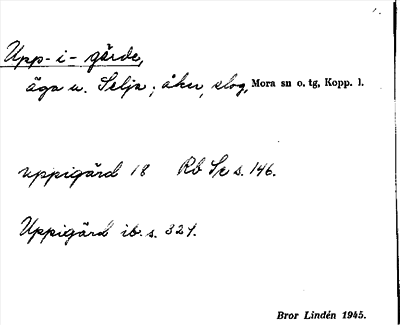 Upp-i-gärde,
äga u. Selja; åker, slog, Mora sn o. tg, Kopp. l.
uppigård 18 Rb Sc s. 146.
Uppigård ib. s. 321.
Bror Lindén 1945.